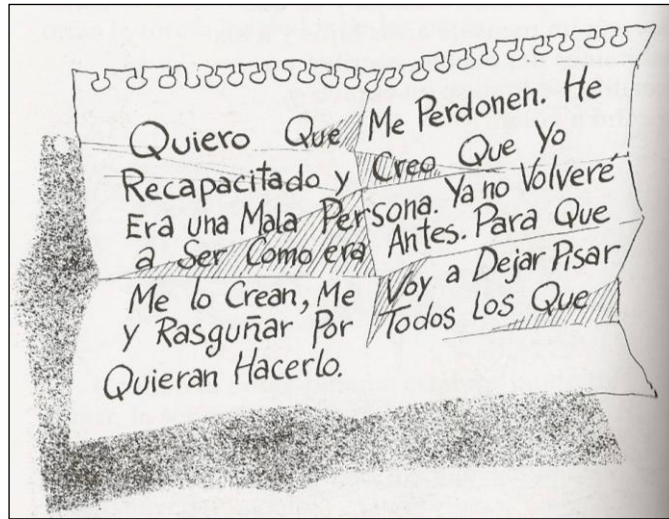 Quiero Que Me Perdonen. He
Recapacitado y Creo Que Yo
Era una Mala Persona. Ya no Volveré
a Ser Como era Antes. Para Que
Me lo Crean, Me Voy a Dejar Pisar
y Rasguñar Por Todos Los Que
Quieran Hacerlo.